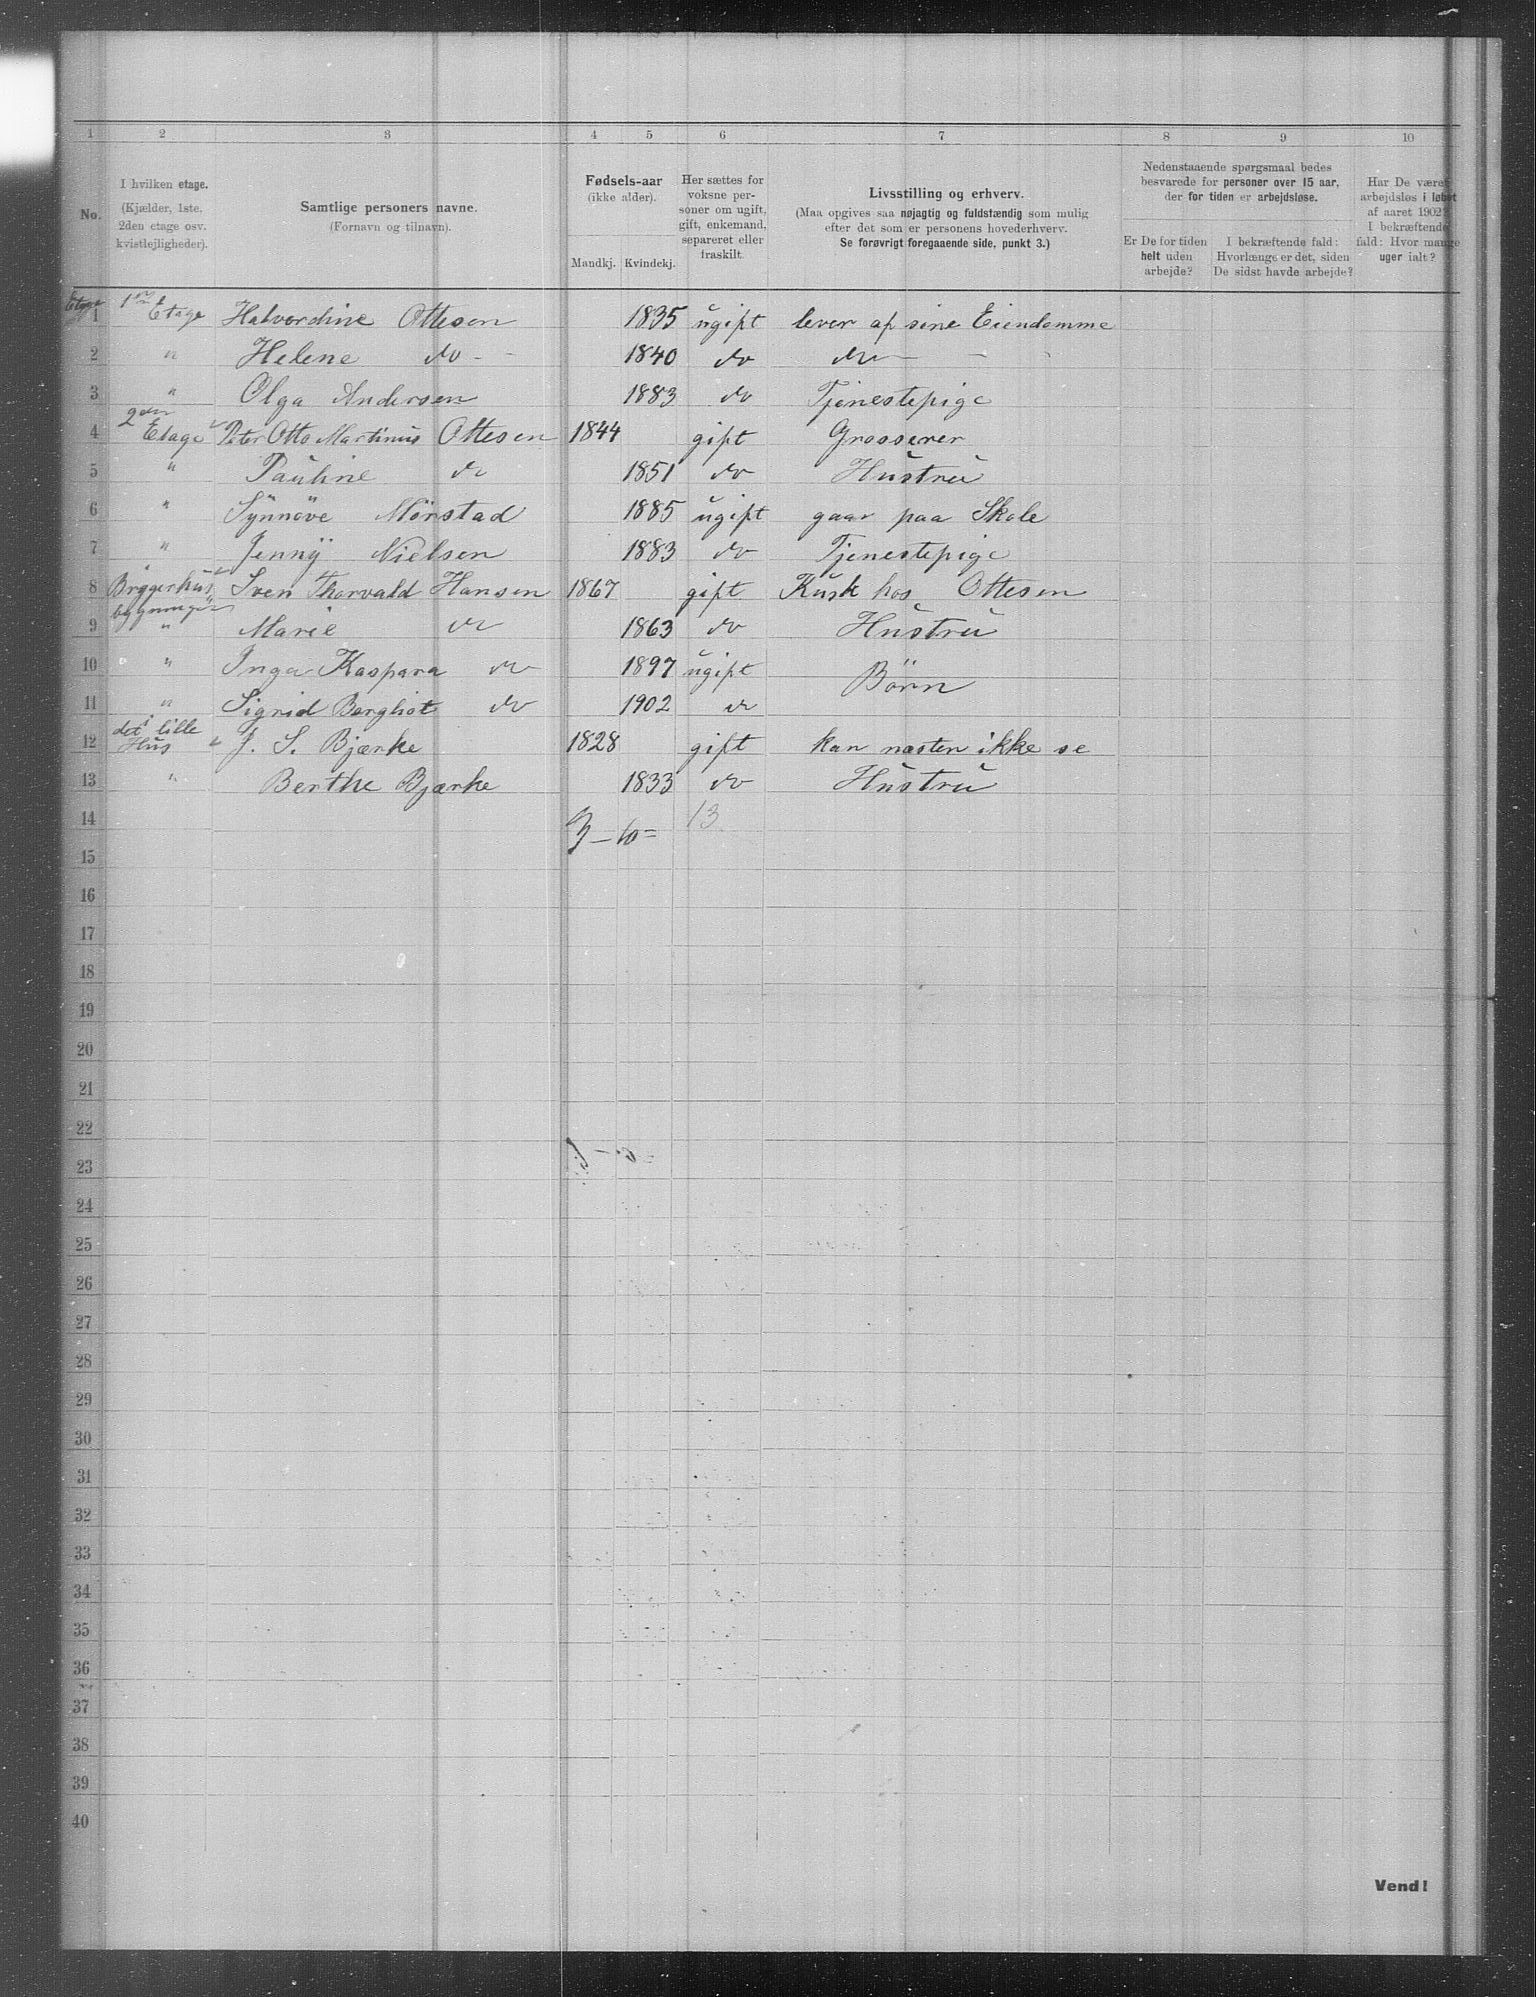 1 2 3 4 5 6 7 8 9 10
No.
I hvilken etage.
(Kjælder, 1ste.
2den etage osv.
kvistlejligheder).
Samtlige personers navne.
(Fornavn og tilnavn).
Fødsels-aar
(ikke alder).
Mandkj. Kvindekj.
Her sættes for
voksne per-
soner om ugift,
gift, enkemand,
separeret eller
fraskilt.
Livsstilling og erhverv.
(Maa opgives saa nøjagtig og fuldstændig som mulig
efter det som er personens hovederhverv.
Se forøvrigt foregaaende side, punkt 3.)
Nedenstaaende spørgsmaal bedes
besvarede for personer over 15 aar,
der for tiden er arbejdsløse.
Er De for tiden
helt uden
arbejde?
I bekræftende fald:
Hvorlænge er det, siden
De sidst havde arbejde?
Har De været
arbejdsløs i løbet
af aaret 1902?
I bekræftende
fald: Hvor mange
uger ialt?
Etage
1 1ste Etage Halvordine Ottesen 1835 ugift lever af sine Eiendomme
2 " Helene do - - 1840 do do - -
3 " Olga Andersen 1883 do Tjenestepige
4 2den Etage Peter Otto Martinus Ottesen 1844 gift Grosserer
5 " Pauline do 1851 do Hustru
6 " Synnöve Mörstad 1885 ugift gaar paa Skole
7 " Jenny Nielsen 1883 do Tjenestepige
8 Bryggerhus Sven Thorvald Hansen 1867 gift Kusk hos Ottesen
bygningen
9 " Marie do 1863 do Hustru
10 " Inga Kaspara do 1897 ugift
Börn
11 " Sigrid Bergliot do 1902 do
i
det lille
12 Hus J. S. Bjærke 1828 gift kan næsten ikke se
13 " Berthe Bjærke 1833 do Hustru
14 13
3 - 10 =
15
16
17
18
19
20
21
22
23
24
25
26
27
28
29
30
31
32
33
34
35
36
37
38
39
40
Vend!